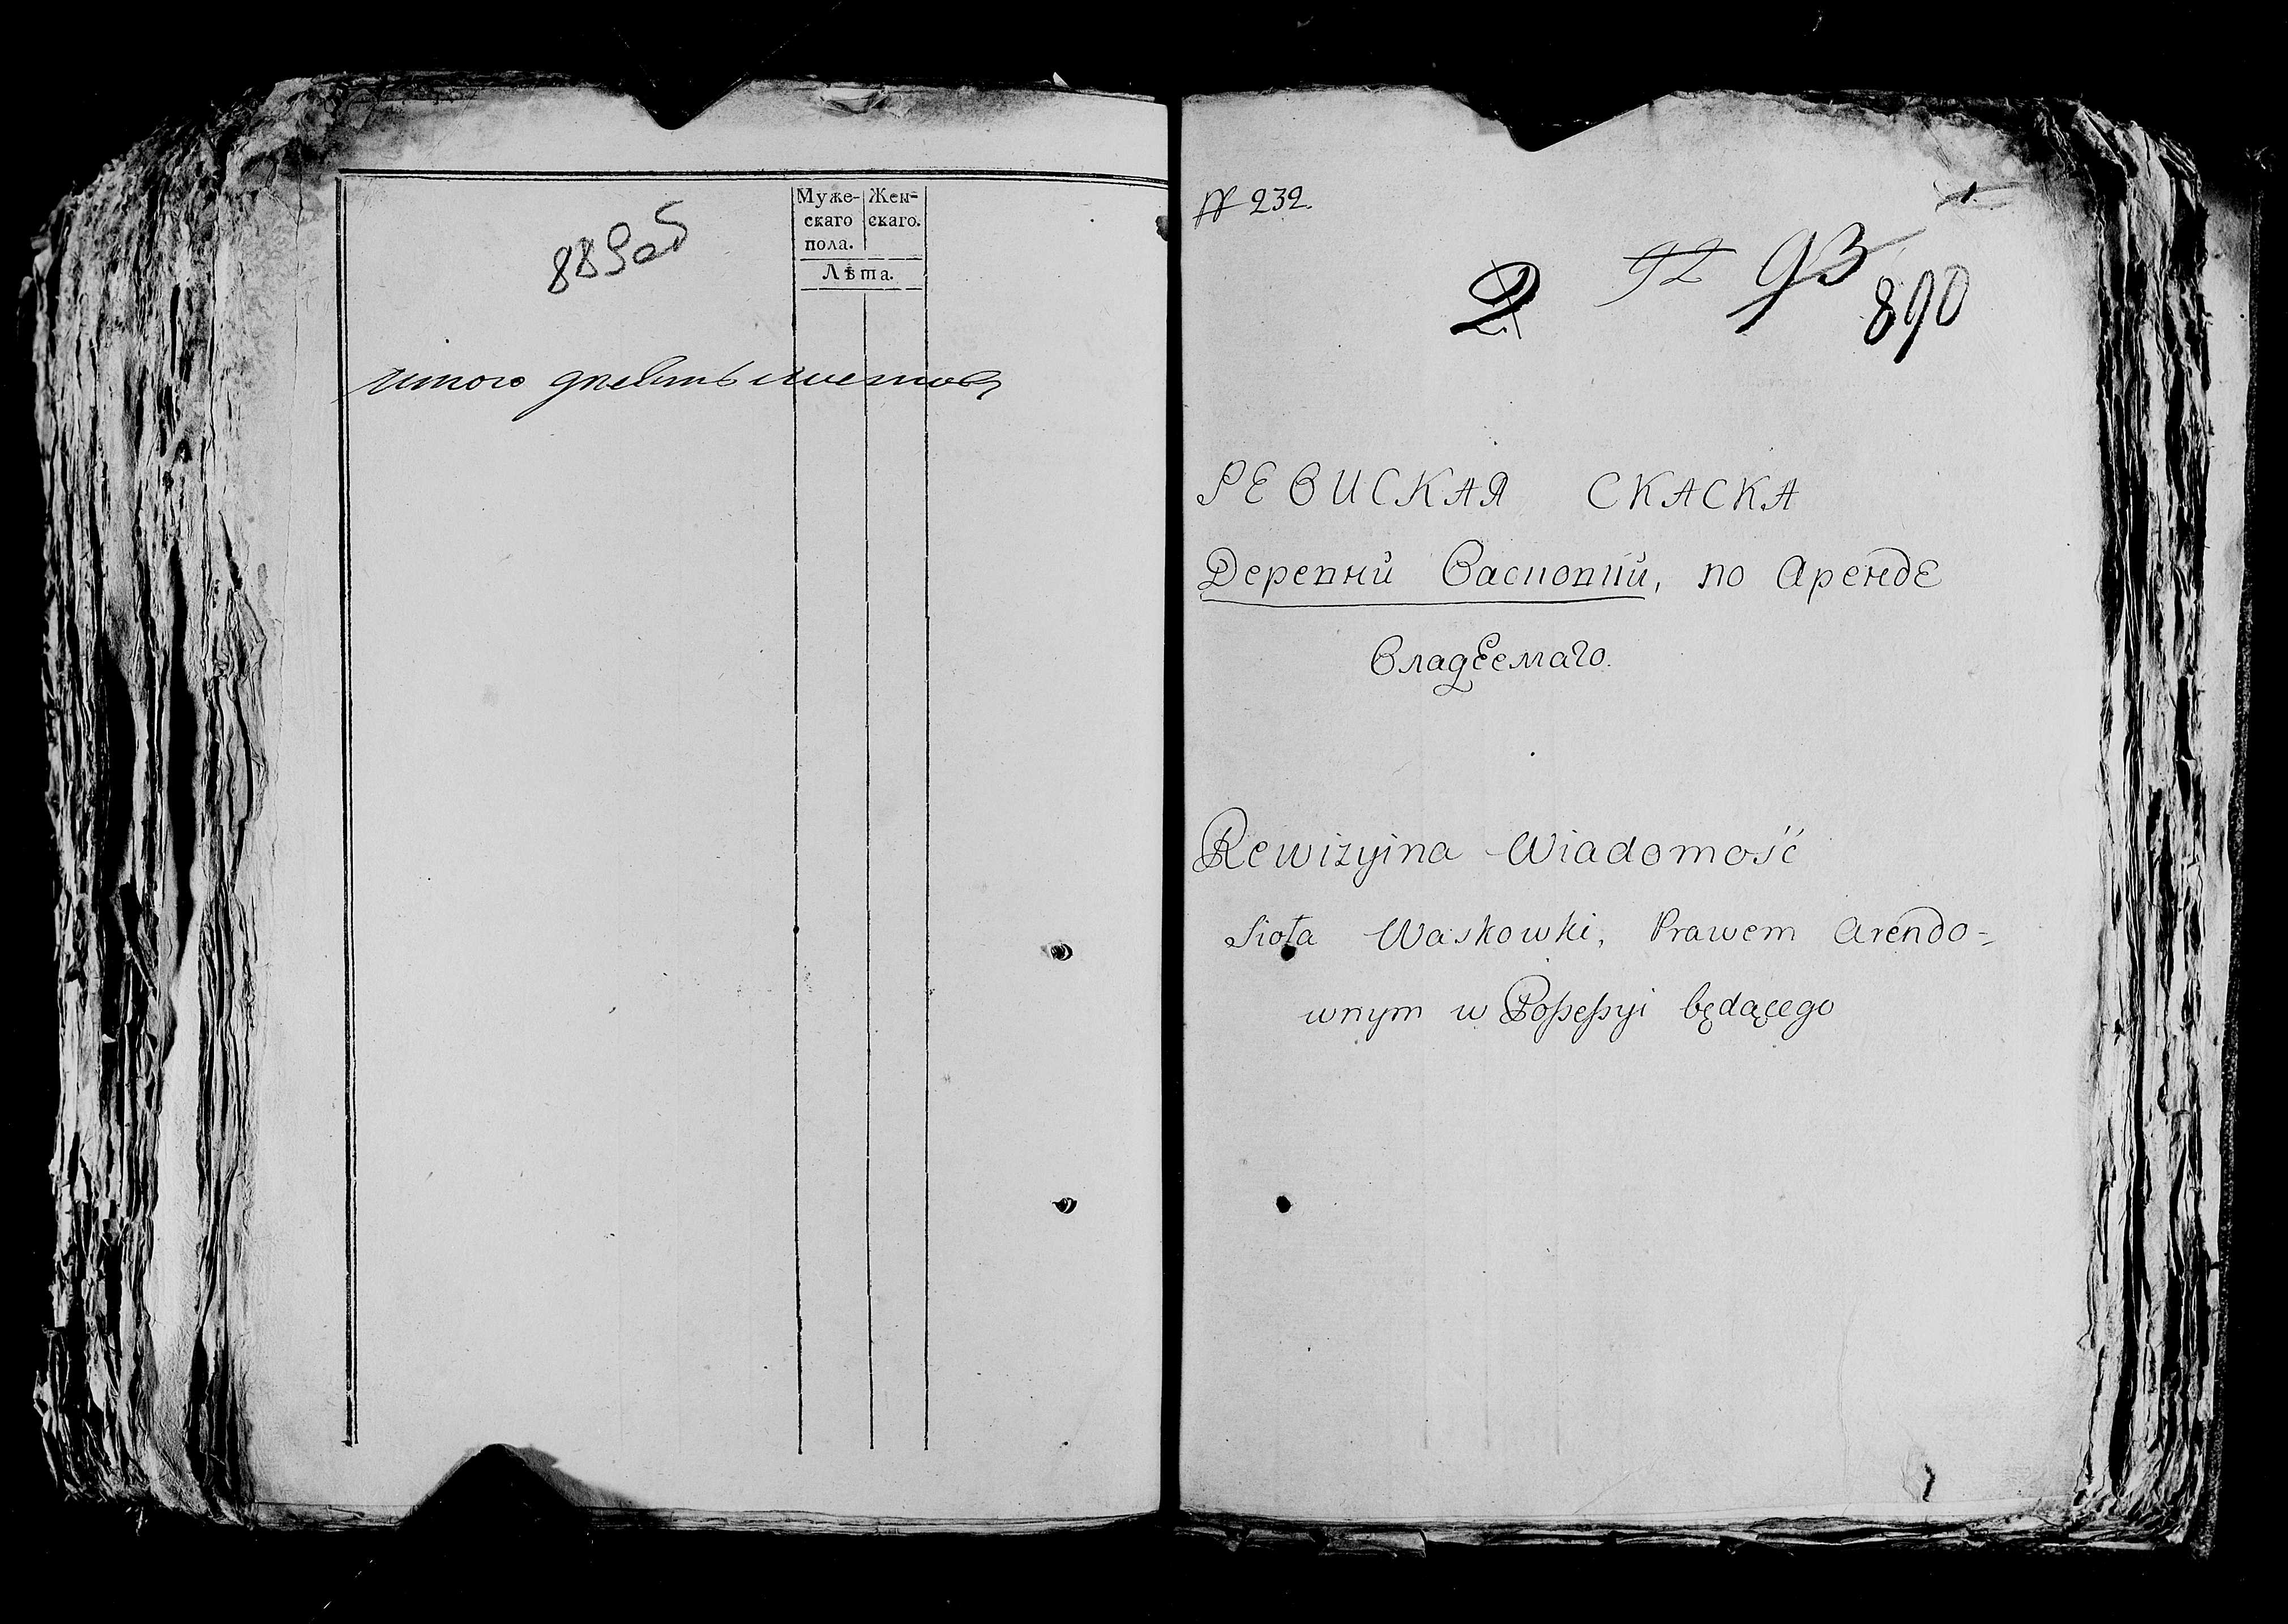 889об
Муже-
скаго
пола.
Жен-
скаго.
Лѣта.
итого девять листовъ
№ 232.
2 92 93
890
РЕВИСКАЯ СКАСКА
Деревнй Васковкй, по Арендѣ
Владѣемаго.
Rewizyina Wiadomość
Sioła Waskowki, Prawem Arendo-
wnym w Possessyi będącego